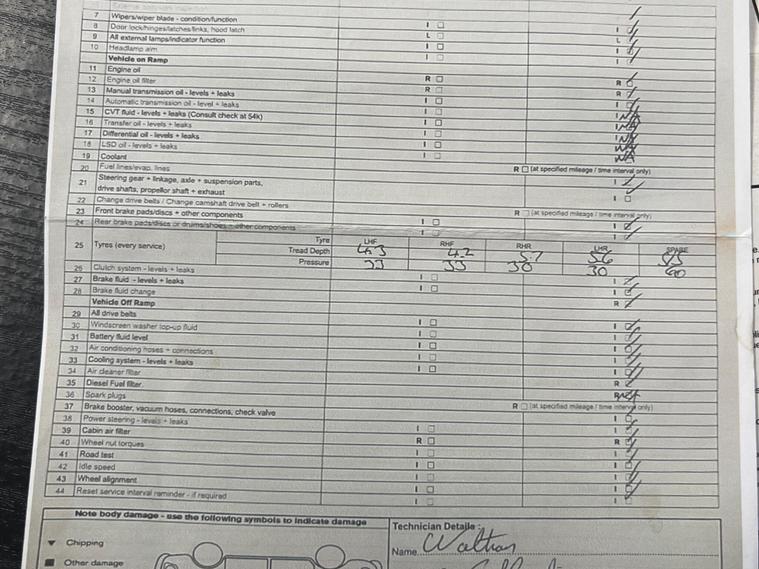 7 Wipers/wiper blade - condition/function I I
8 Door lock/hinges/latches/links, hood latch L L
9 All external lamps/indicator function I I
10 Headlamp aim I I
Vehicle on Ramp
11 Engine oil R R
12 Engine oil filter R R
13 Manual transmission oil - levels + leaks I I
14 Automatic transmission oil - level + leaks I I N/A
15 CVT fluid - levels + leaks (Consult check at 54k) I I N/A
16 Transfer oil - levels + leaks I N/A
17 Differential oil - levels + leaks I N/A
18 LSD oil - levels + leaks I N/A
19 Coolant R (at specified mileage / time interval only)
20 Fuel lines/evap. lines I
21 Steering gear + linkage, axle + suspension parts,
drive shafts, propellor shaft + exhaust I
22 Change drive belts / Change camshaft drive belt + rollers R (at specified mileage / time interval only)
23 Front brake pads/discs + other components I I
24 Rear brake pads/discs or drums/shoes + other components I
25 Tyres (every service) Tyre LHF RHF RHR LHR SPARE
Tread Depth 4.3 4.2 5.7 5.6 5.5
Pressure 33 33 30 30 60
26 Clutch system - levels + leaks I I
27 Brake fluid - levels + leaks I I
28 Brake fluid change R
Vehicle Off Ramp
29 All drive belts I I
30 Windscreen washer top-up fluid I I
31 Battery fluid level I I
32 Air conditioning hoses + connections I I
33 Cooling system - levels + leaks I I
34 Air cleaner filter R
35 Diesel Fuel filter R
36 Spark plugs R (at specified mileage / time interval only)
37 Brake booster, vacuum hoses, connections, check valve I
38 Power steering - levels + leaks I I
39 Cabin air filter R R
40 Wheel nut torques I I
41 Road test I I
42 Idle speed I I
43 Wheel alignment I I
44 Reset service interval reminder - if required I I
Note body damage - use the following symbols to indicate damage
Chipping
Other damage
Technician Details:
Name